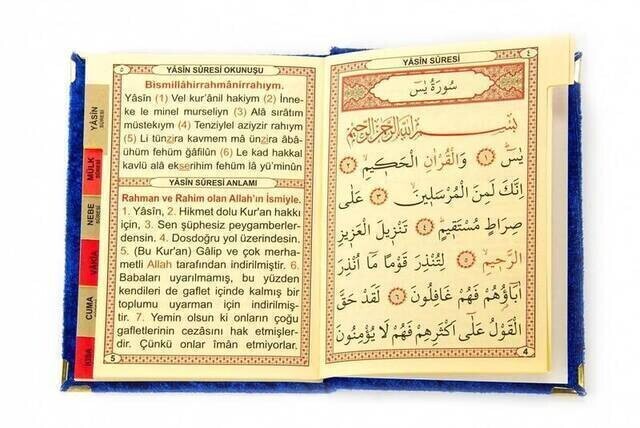 ٤
YÂSÎN SÛRESİ
سُورَةُ يٰسۤ
بِسْــــمِ اللّٰهِ الرَّحْمٰنِ الرَّحِيمِ
يٰسۤ ﴿١﴾ وَالْقُرْاٰنِ الْحَكِيمِ ﴿٢﴾
اِنَّكَ لَمِنَ الْمُرْسَلِينَ ﴿٣﴾ عَلٰى
صِرَاطٍ مُسْتَقِيمٍ ﴿٤﴾ تَنْزِيلَ الْعَزِيزِ
الرَّحِيمِ ﴿٥﴾ لِتُنْذِرَ قَوْمًا مَٓا اُنْذِرَ
اٰبَٓاؤُ۬هُمْ فَهُمْ غَافِلُونَ ﴿٦﴾ لَقَدْ حَقَّ
الْقَوْلُ عَلٰٓى اَكْثَرِهِمْ فَهُمْ لَا يُؤْمِنُونَ
4
٥
YÂSÎN SÛRESİ OKUNUŞU
Bismillâhirrahmânirrahıym.
Yâsîn (1) Vel kur'ânil hakiym (2) İnne-
ke le minel murseliyn (3) Alâ sırâtım
müstekıym (4) Tenziylel aziyzir rahıym
(5) Li tünzira kavmem mâ ünzira âbâ-
ühüm fehüm ğâfilûn (6) Le kad hakkal
kavlü alâ ekserihim fehüm lâ yü'minûn
YÂSÎN SÛRESİ ANLAMI
Rahman ve Rahim olan Allah'ın İsmiyle.
1. Yâsîn, 2. Hikmet dolu Kur'an hakkı
için, 3. Sen şüphesiz peygamberler-
densin. 4. Dosdoğru yol üzerindesin.
5. (Bu Kur'an) Gâlip ve çok merha-
metli Allah tarafından indirilmiştir. 6.
Babaları uyarılmamış, bu yüzden
kendileri de gaflet içinde kalmış bir
toplumu uyarman için indirilmiş-
tir. 7. Yemin olsun ki onların çoğu
gafletlerinin cezasını hak etmişler-
dir. Çünkü onlar îman etmiyorlar.
5
YÂSÎN
SÛRESİ
MÜLK
SÛRESİ
NEBE
SÛRESİ
VÂKIA
CUMA
KISA